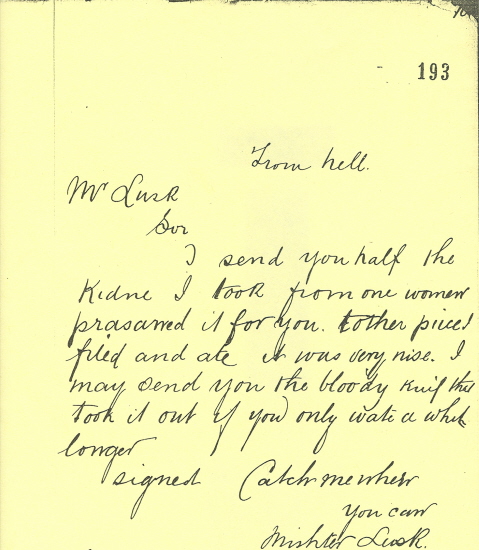 193
From hell.
Mr Lusk
Sor
I send you half the
Kidne I took from one women
prasarved it for you. tother piece I
fried and ate it was very nise. I
may send you the bloody knif that
took it out if you only wate a whil
longer
signed Catch me when
you can
Mishter Lusk.